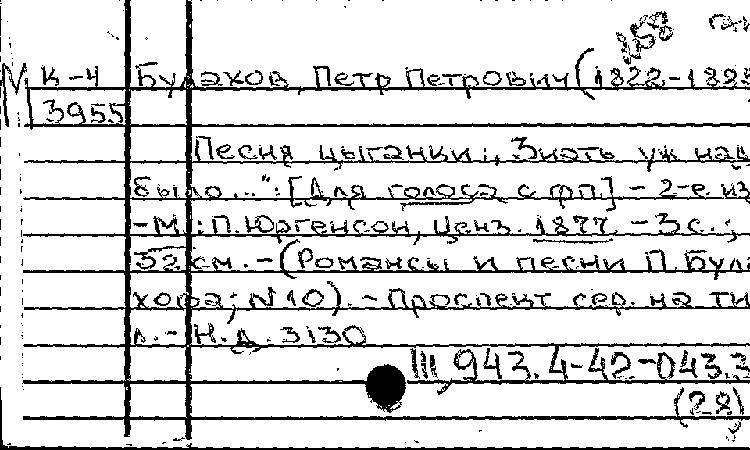 К-4 Булахов, Петр Петрович (1822-1885
3955
Песня цыганки: „Знать уж над
было...": [Для голоса с фп.] - 2-е из
- М.: П. Юргенсон, ценз. 1877. - 3 с.;
32 см. - (Романсы и песни П. Була
хова; №10). - Проспект сер. на ти
л. - Н.д. 3130
III, 943.4-42-043.3
(28)